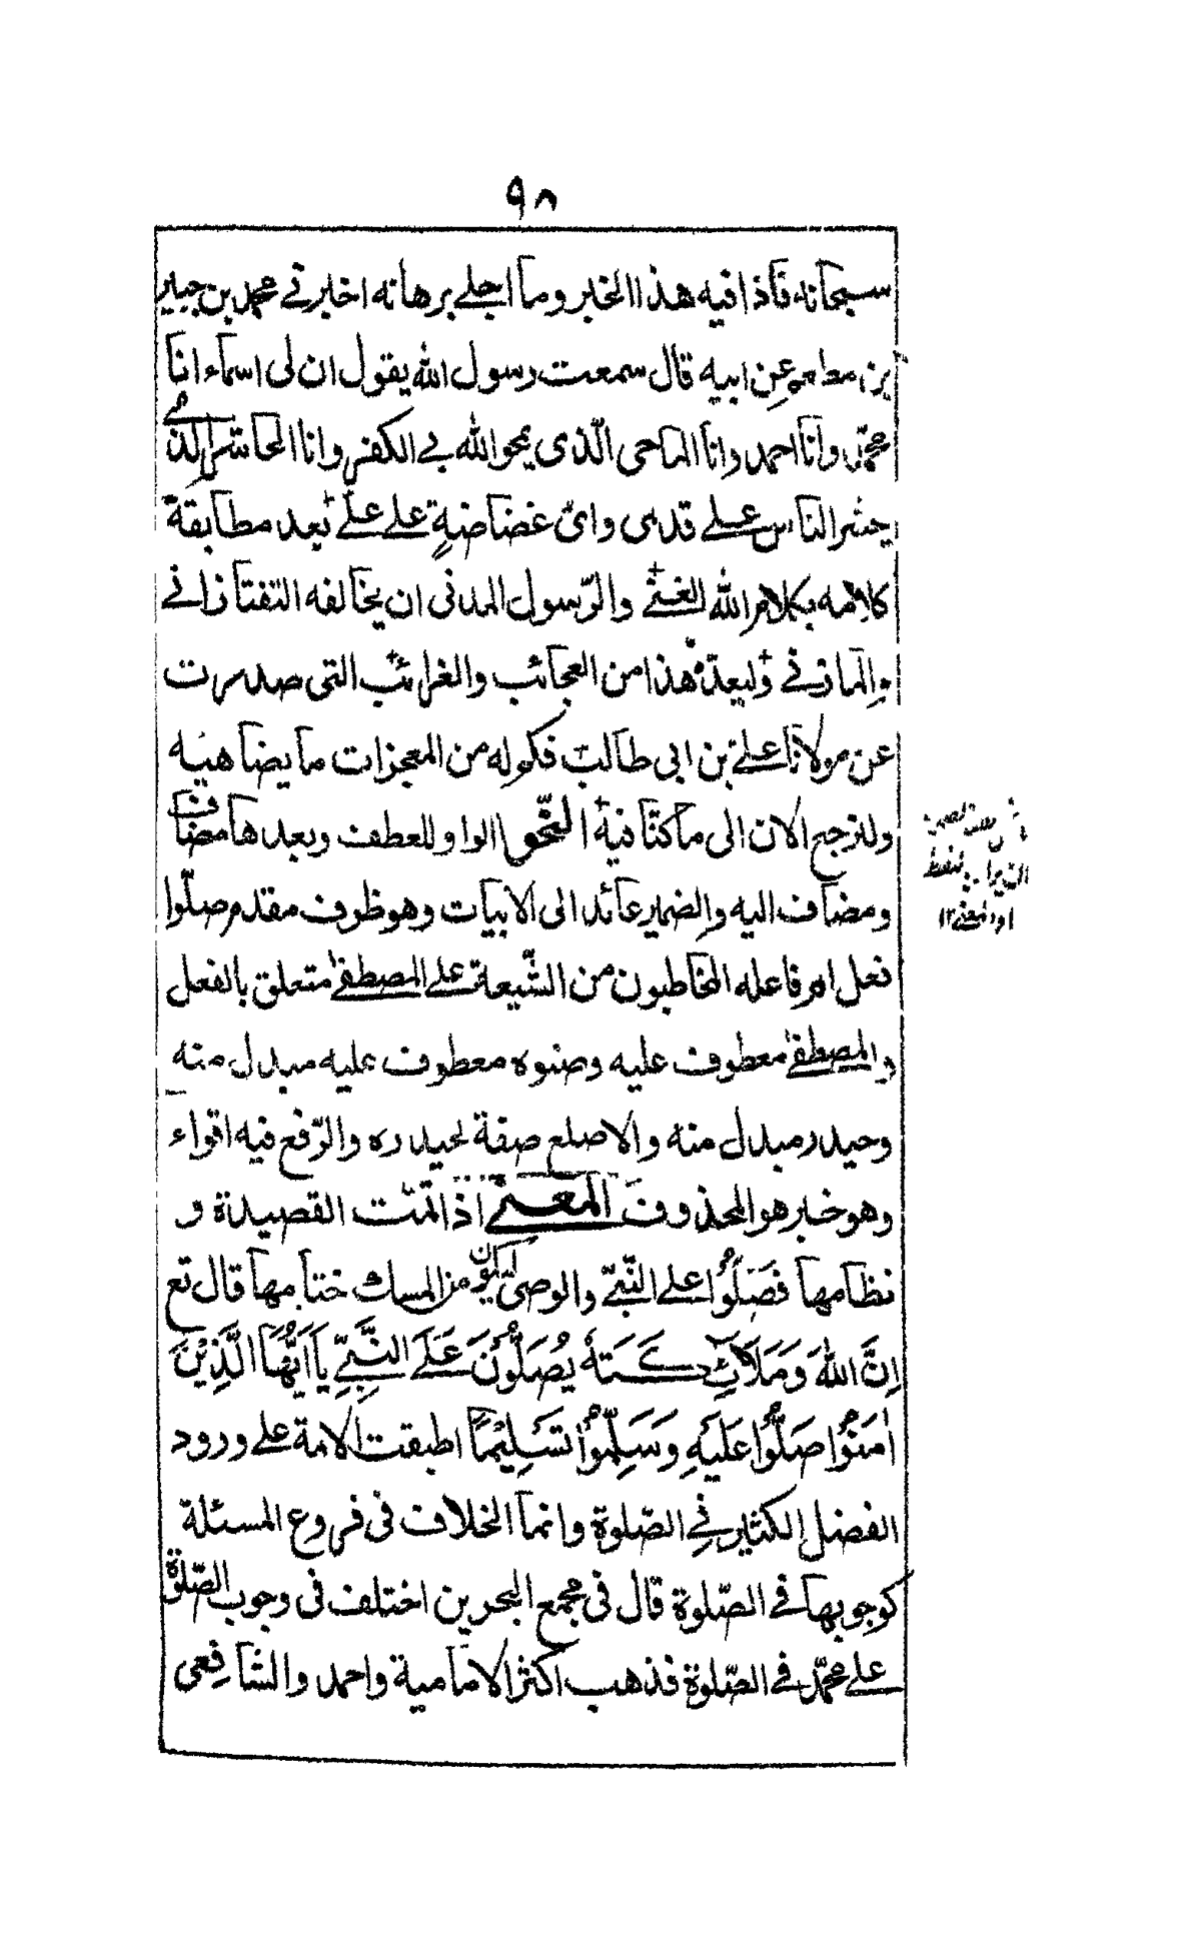 ٩٨
سبحانه فاذا فيه هذا الخبر وما اجلى برهانه اخبرنى محمد بن جبير
بن مطعم عن ابيه قال سمعت رسول الله يقول ان لى اسماء انا
محمّد وانا احمد وانا الماحى الّذى يمحو الله بى الكفر وانا الحاشر الذى
يحشر الناس على قدمى واىّ غضاضةٍ على علىّ بعد مطابقة
كلامه بكلام الله الغنى والرّسول المدنى ان يخالفه التفتازانى
والمازنى وليعدّ هذا من العجائب والغرائب التى صدرت
عن مولانا على بن ابى طالب فكم له من المعجزات ما يضاهيه
ولنرجع الان الى ما كنّا فيه النّحو الواو للعطف وبعدها مضاف
ومضاف اليه والضمير عائد الى الابيات وهو ظرف مقدم صلّوا
فعل امر فاعله المخاطبون من الشّيعة على المصطفى متعلق بالفعل
والمصطفى معطوف عليه وصنوه معطوف عليه مبدل منه
وحيدر مبدل منه والاصلع صفة لحيدره والرّفع فيه اقواء
وهو خبر هو المحذوف المعنى اذا تمّت القصيدة و
نظامها فصلّوا على النّبىّ والوصى ليكون من المسك ختامها قال تع
اِنَّ اللهَ وَمَلَائِكَتَهٗ يُصَلُّوْنَ عَلَى النَّبِىِّ يَا اَيُّهَا الَّذِيْنَ
اٰمَنُوْا صَلُّوْا عَلَيْهِ وَسَلِّمُوْا تَسْلِيْمًا اطبقت الامة على ورود
الفضل الكثير فى الصّلوة وانما الخلاف فى فروع المسئلة
كوجوبها فى الصّلوة قال فى مجمع البحرين اختلف فى وجوب الصّلوة
على محمّد فى الصّلوة فذهب اكثر الامامية واحمد والشافعى